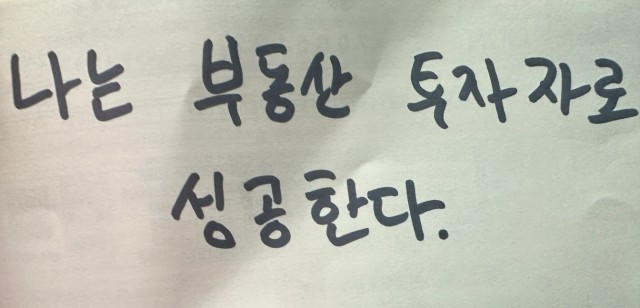 나는 부동산 투자자로
성공한다.